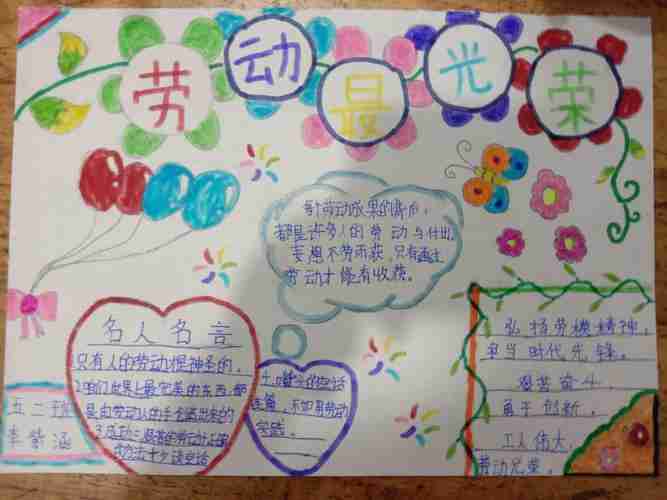 劳动最光荣
每个劳动成果的背后,
都是许多人的劳动与付出,
妄想不劳而获,只有通过
劳动才能有收获。
名人名言
只有人的劳动
神圣的,
2.我们世界上最完美的东西,都
是由劳动
的手创造出来的
3.
劳动
少说空话
少
的空话
连篇,不如用劳动
实践。
弘扬劳模精神,
争当时代先锋。
艰苦奋斗,
勇于创新。
工人伟大,
劳动光荣。
五二班
李紫涵